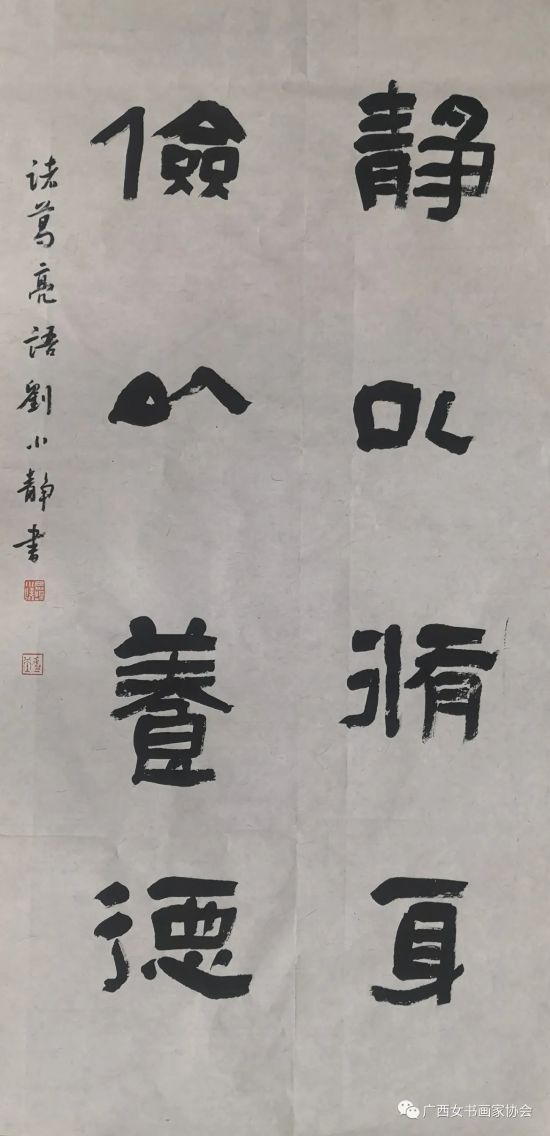 静以脩身
儉以養德
諸葛亮語劉小静書
广西女书画家协会